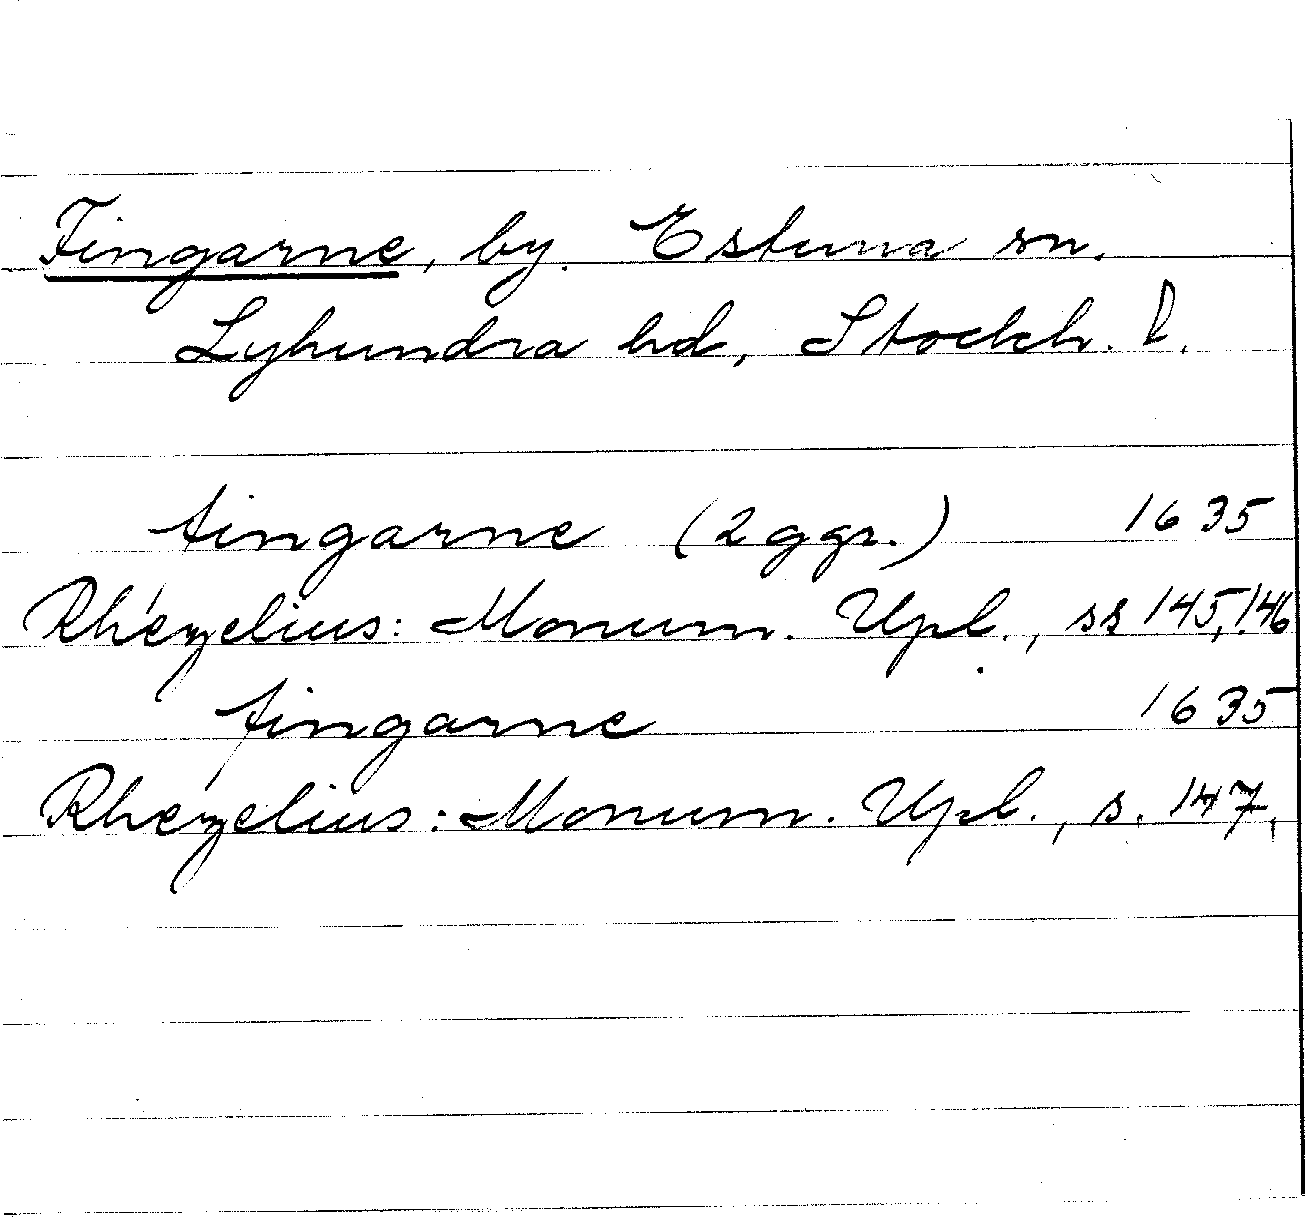 Fingarne, by. Estuna sn.
Lyhundra hd, Stockh. l.
fingarne (2 ggr.) 1635
Rhezelius: Monum. Upl., ss 145, 146
fingarne 1635
Rhezelius: Monum. Upl., s. 147.